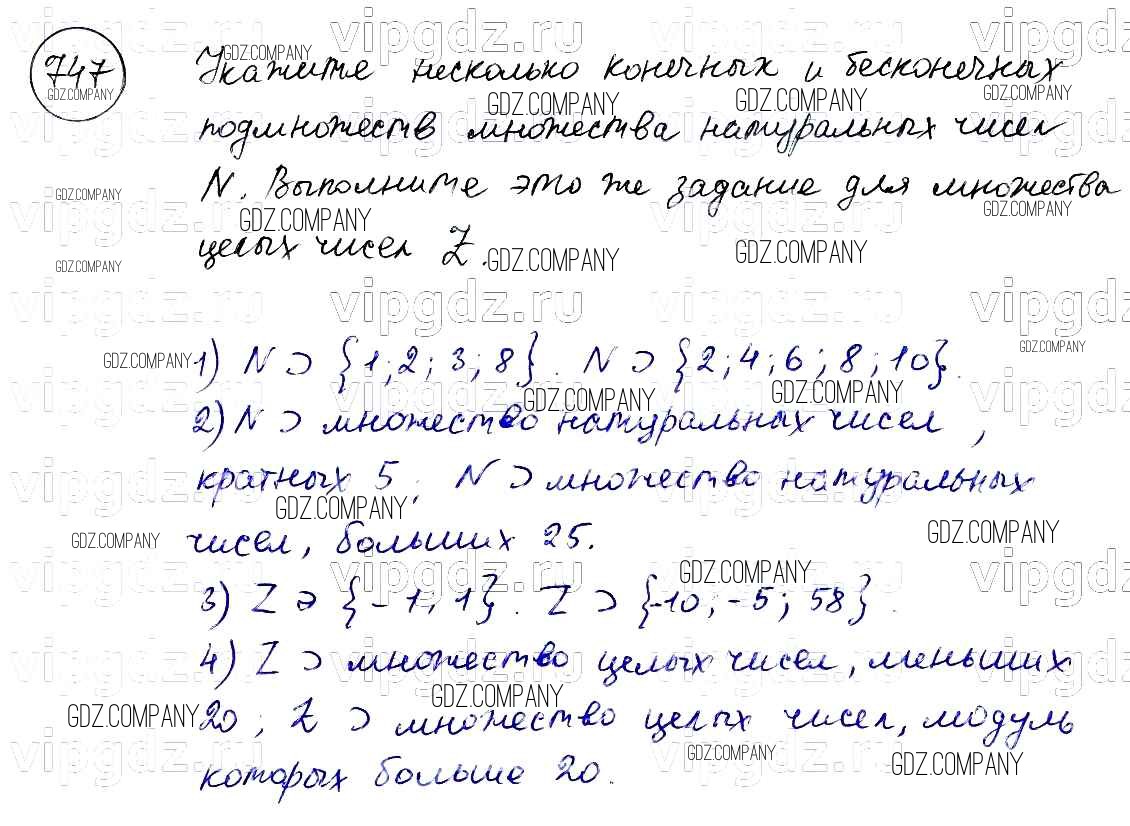 747
Укажите несколько конечных и бесконечных
подмножеств множества натуральных чисел
N. Выполните это же задание для множества
целых чисел Z.
1) N ⊃ {1; 2; 3; 8}. N ⊃ {2; 4; 6; 8; 10}.
2) N ⊃ множество натуральных чисел,
кратных 5; N ⊃ множество натуральных
чисел, больших 25.
3) Z ∋ {-1; 1}. Z ⊃ {-10; -5; 58}.
4) Z ⊃ множество целых чисел, меньших
20; Z ⊃ множество целых чисел, модуль
которых больше 20.
vipgdz.ru
GDZ.COMPANY